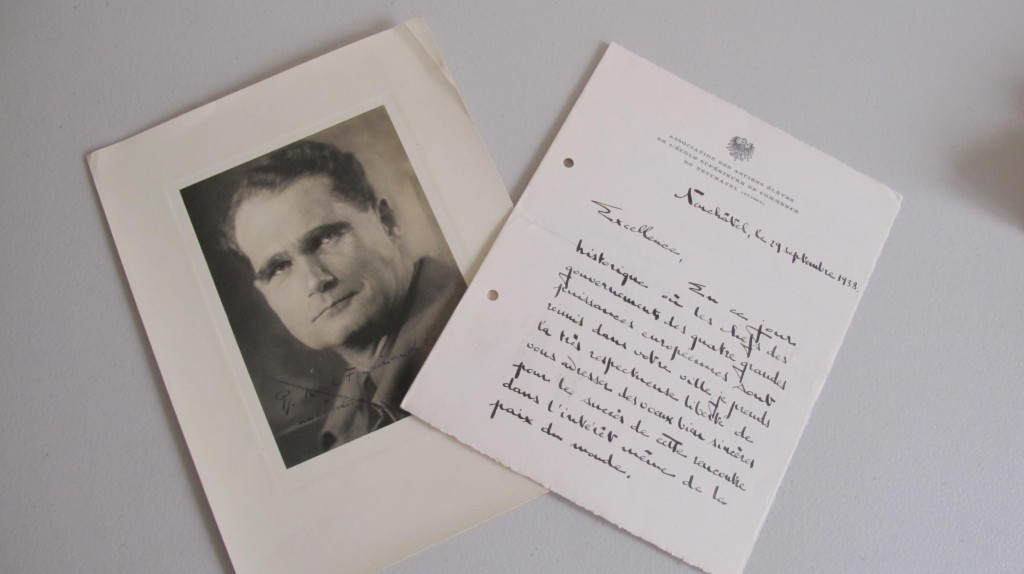 ASSOCIATION DES ANCIENS ÉLÈVES
DE L'ÉCOLE SUPÉRIEURE DE COMMERCE
DE NEUCHATEL
Neuchâtel, le 29 septembre 1938.
Excellence,
En ce jour
historique où les chefs des
gouvernements des quatre grandes
puissances européennes sont
réunis dans votre ville, je prends
la très respectueuse liberté de
vous adresser des vœux bien sincères
pour le succès de cette rencontre
dans l'intérêt même de la
paix du monde.